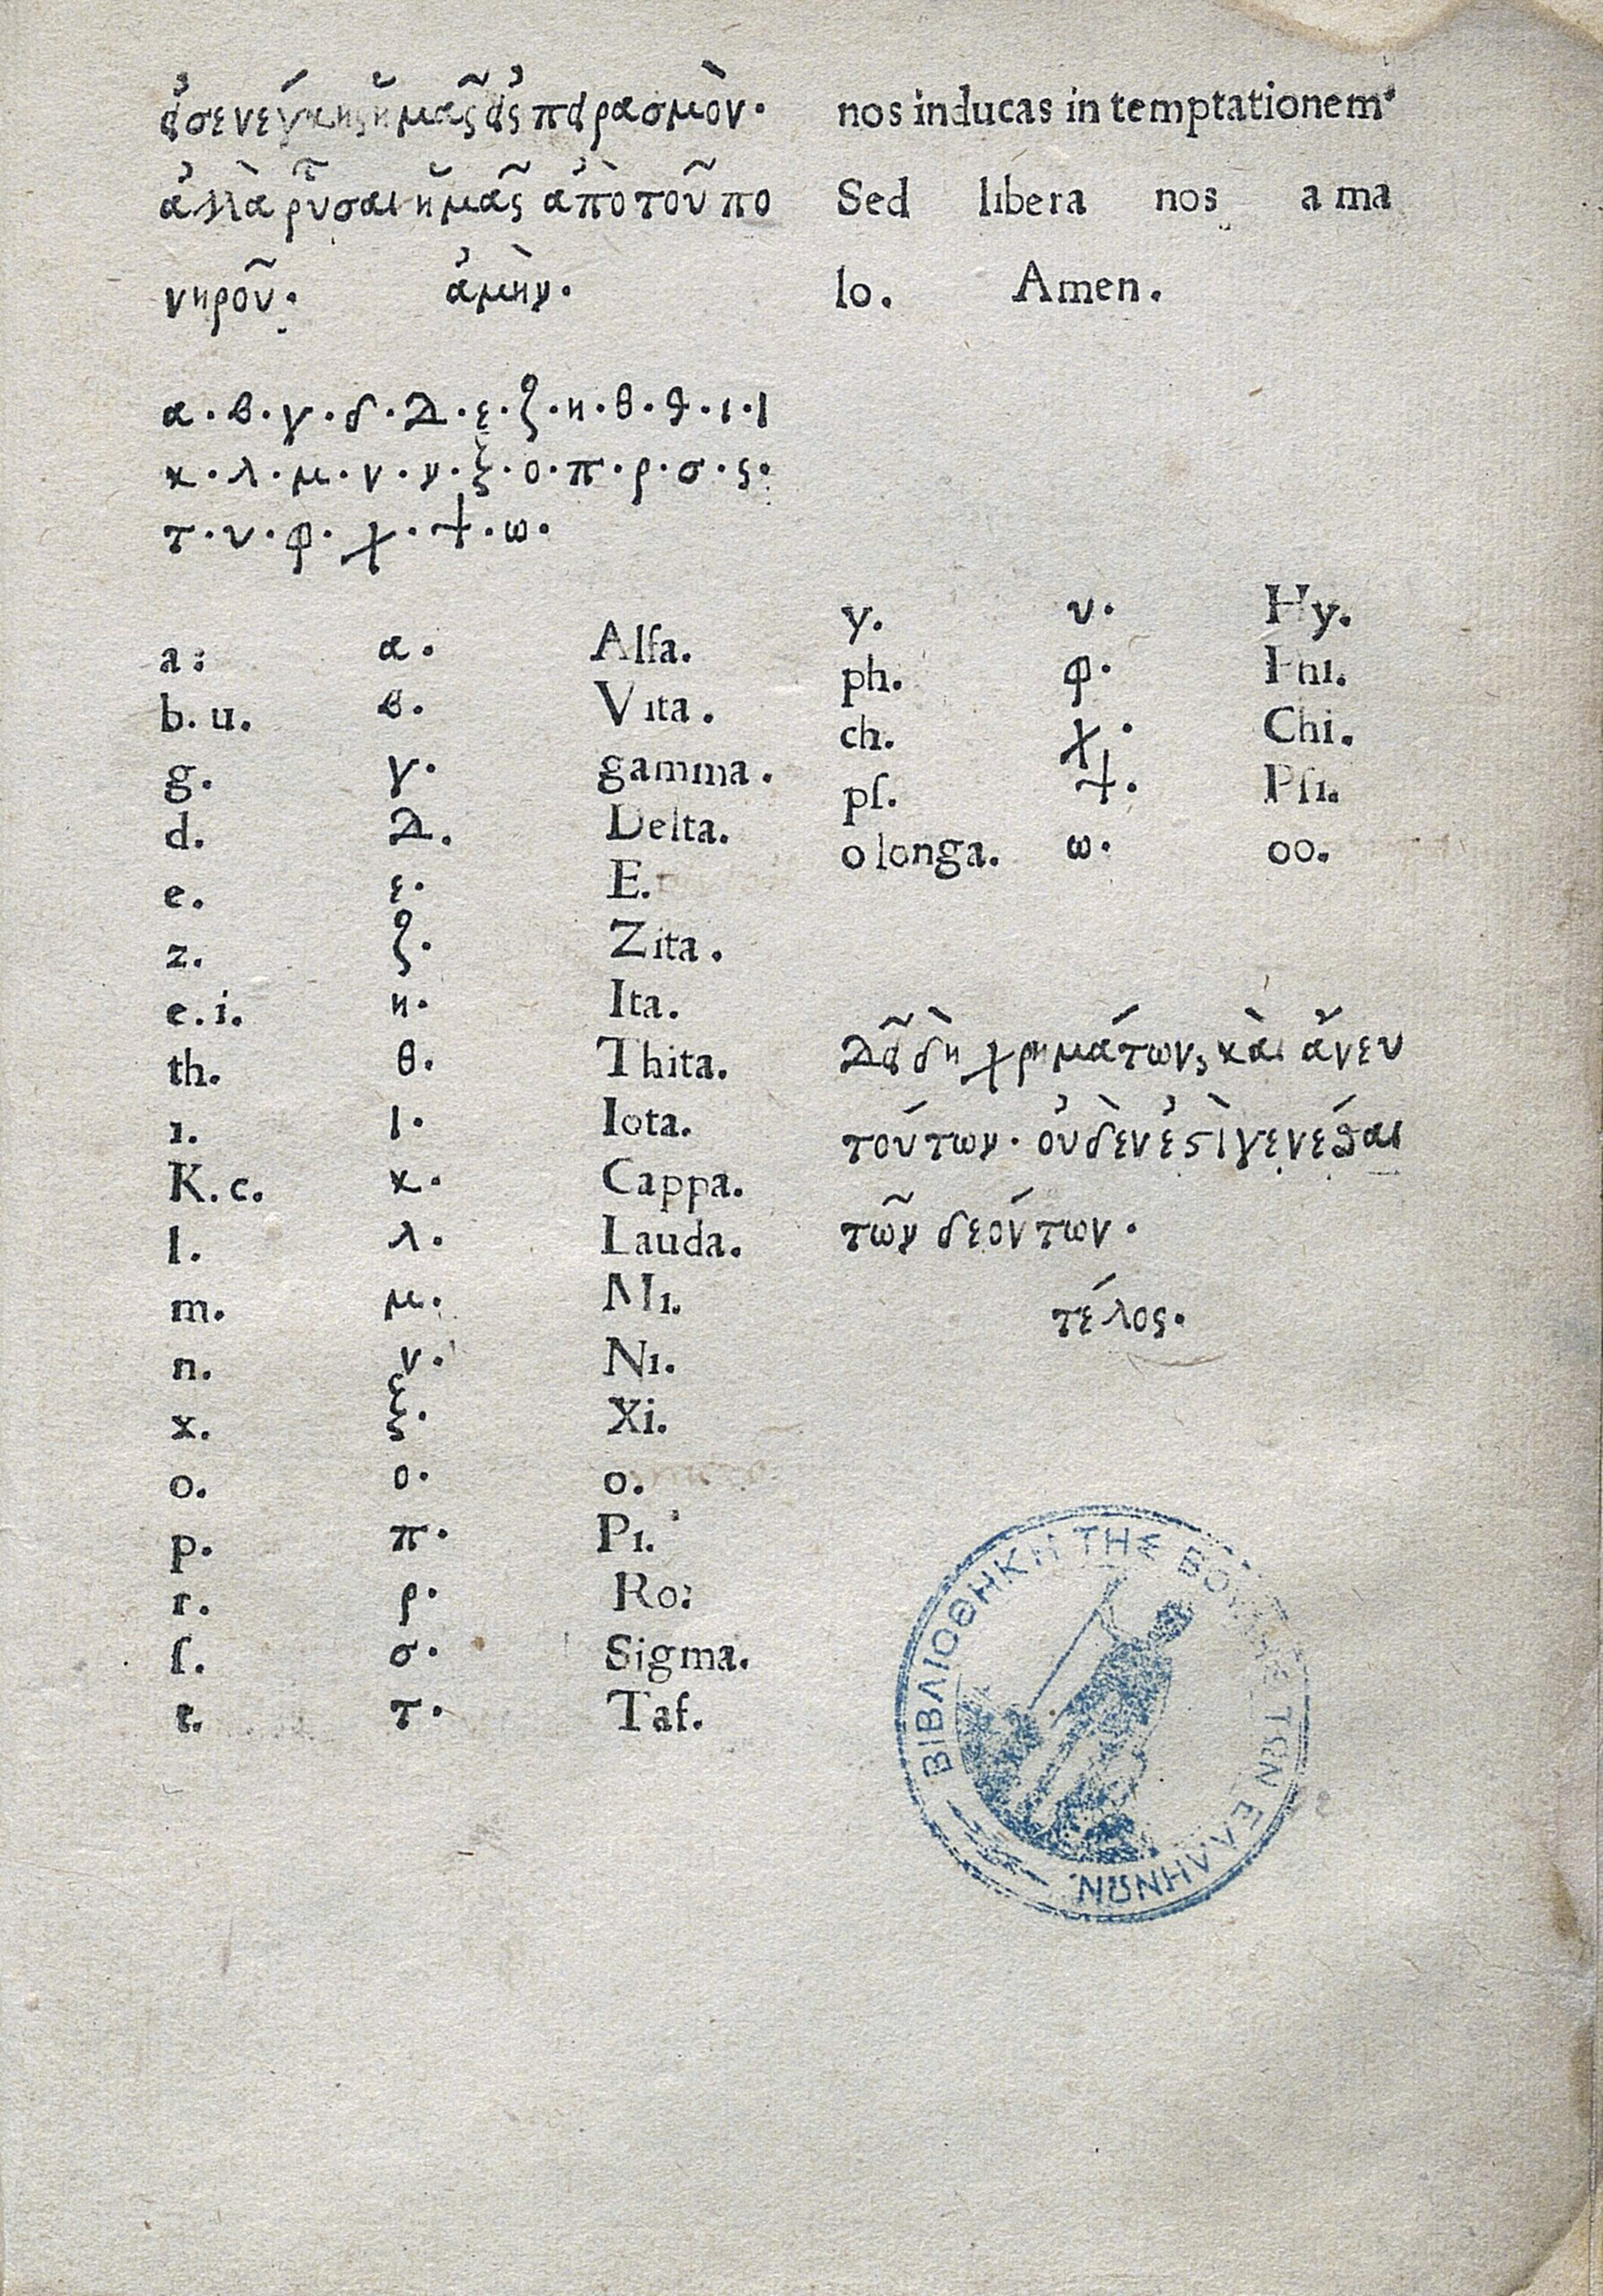 εἰσενέγκῃς ἡμᾶς εἰς πειρασμὸν·
ἀλλὰ ῥῦσαι ἡμᾶς ἀπὸ τοῦ πο
νηροῦ· ἀμὴν·
nos inducas in temptationem·
Sed libera nos a ma
lo. Amen.
α·β·γ·δ·Δ·ε·ζ·η·θ·ϑ·ι·ι
κ·λ·μ·ν·ν·ξ·ο·π·ρ·σ·ς·
τ·υ·φ·χ·ψ·ω·
a: α· Alfa.
b. u. β· Vita.
g. γ· gamma.
d. Δ. Delta.
e. ε· E.
z. ζ· Zita.
e. i. η· Ita.
th. θ· Thita.
ı. ι· Iota.
K. c. κ· Cappa.
l. λ· Lauda.
m. μ· Mı.
n. ν· Nı.
x. ξ· Xi.
o. ο· o.
p. π· Pı.
r. ρ· Ro:
ſ. σ· Sigma.
t. τ· Taf.
y. υ· Hy.
ph. φ· Phı.
ch. χ· Chi.
pſ. ψ· Pſı.
o longa. ω· oo.
Δεῖ δὴ χρημάτων, καὶ ἄνευ
τούτων· οὐδὲν ἐστὶ γενέσθαι
τῶν δεόντων·
τέλος·
ΒΙΒΛΙΟΘΗΚΗ ΤΗΣ ΒΟΥΛΗΣ ΤΩΝ ΕΛΛΗΝΩΝ